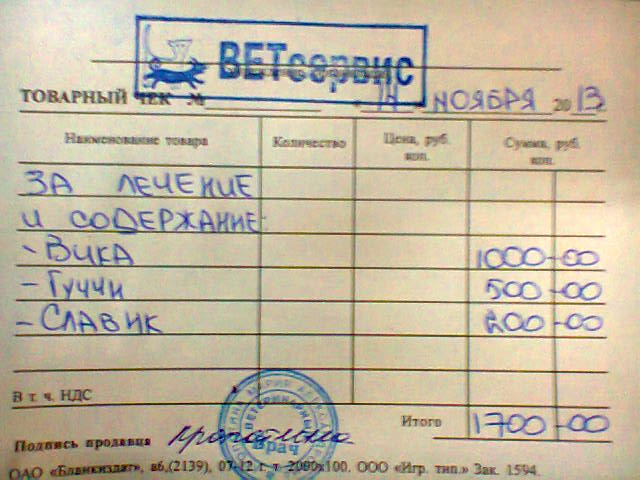 ВЕТсервис
ТОВАРНЫЙ ЧЕК № 14 НОЯБРЯ 2013
Наименование товара Количество Цена, руб. коп. Сумма, руб. коп.
ЗА ЛЕЧЕНИЕ
И СОДЕРЖАНИЕ:
- ВИКА 1000-00
- ГУЧЧИ 500-00
- СЛАВИК 200-00
В т. ч. НДС
Итого 1700-00
Подпись продавца
ВЕТЕРИНАРНЫЙ
Врач
ОАО «Бланкиздат», вб,(2139), 07-12 г. т. 2000х100. ООО «Игр. тип.» Зак. 1594.